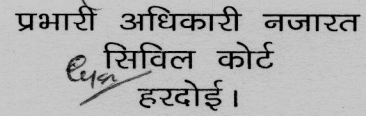 प्रभारी अधिकारी नजारत
सिविल कोर्ट
हरदोई।